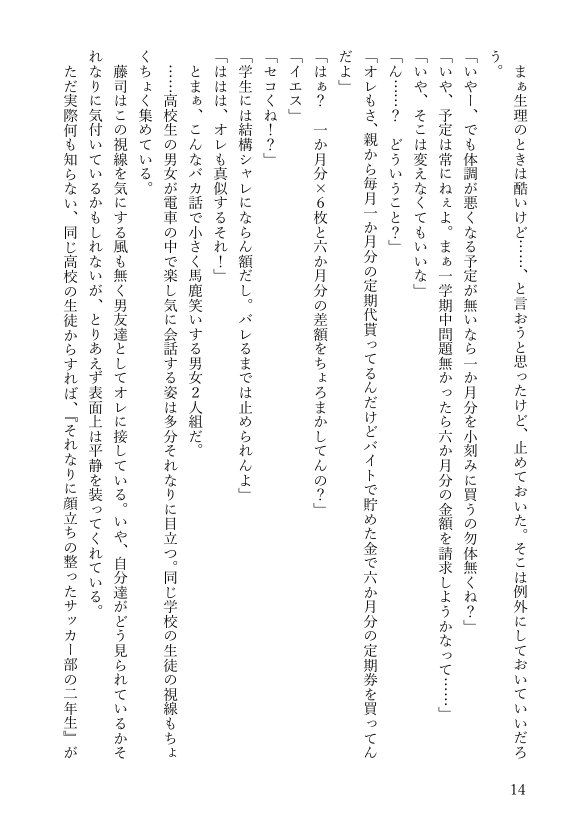 まぁ生理のときは酷いけど……、と言おうと思ったけど、止めておいた。そこは例外にしておいていいだろ
う。
「いやー、でも体調が悪くなる予定が無いなら一か月分を小刻みに買うの勿体無くね？」
「いや、予定は常にねぇよ。まぁ一学期中問題無かったら六か月分の金額を請求しようかなって……」
「いや、そこは変えなくてもいいな」
「ん……？　どういうこと？」
「オレもさ、親から毎月一か月分の定期代貰ってるんだけどバイトで貯めた金で六か月分の定期券を買ってん
だよ」
「はぁ？　一か月分×６枚と六か月分の差額をちょろまかしてんの？」
「イエス」
「セコくね！？」
「学生には結構シャレにならん額だし。バレるまでは止められんよ」
「ははは、オレも真似するそれ！」
とまぁ、こんなバカ話で小さく馬鹿笑いする男女２人組だ。
……高校生の男女が電車の中で楽し気に会話する姿は多分それなりに目立つ。同じ学校の生徒の視線もちょ
くちょく集めている。
藤司はこの視線を気にする風も無く男友達としてオレに接している。いや、自分達がどう見られているかそ
れなりに気付いているかもしれないが、とりあえず表面上は平静を装ってくれている。
ただ実際何も知らない、同じ高校の生徒からすれば、『それなりに顔立ちの整ったサッカー部の二年生』が
14